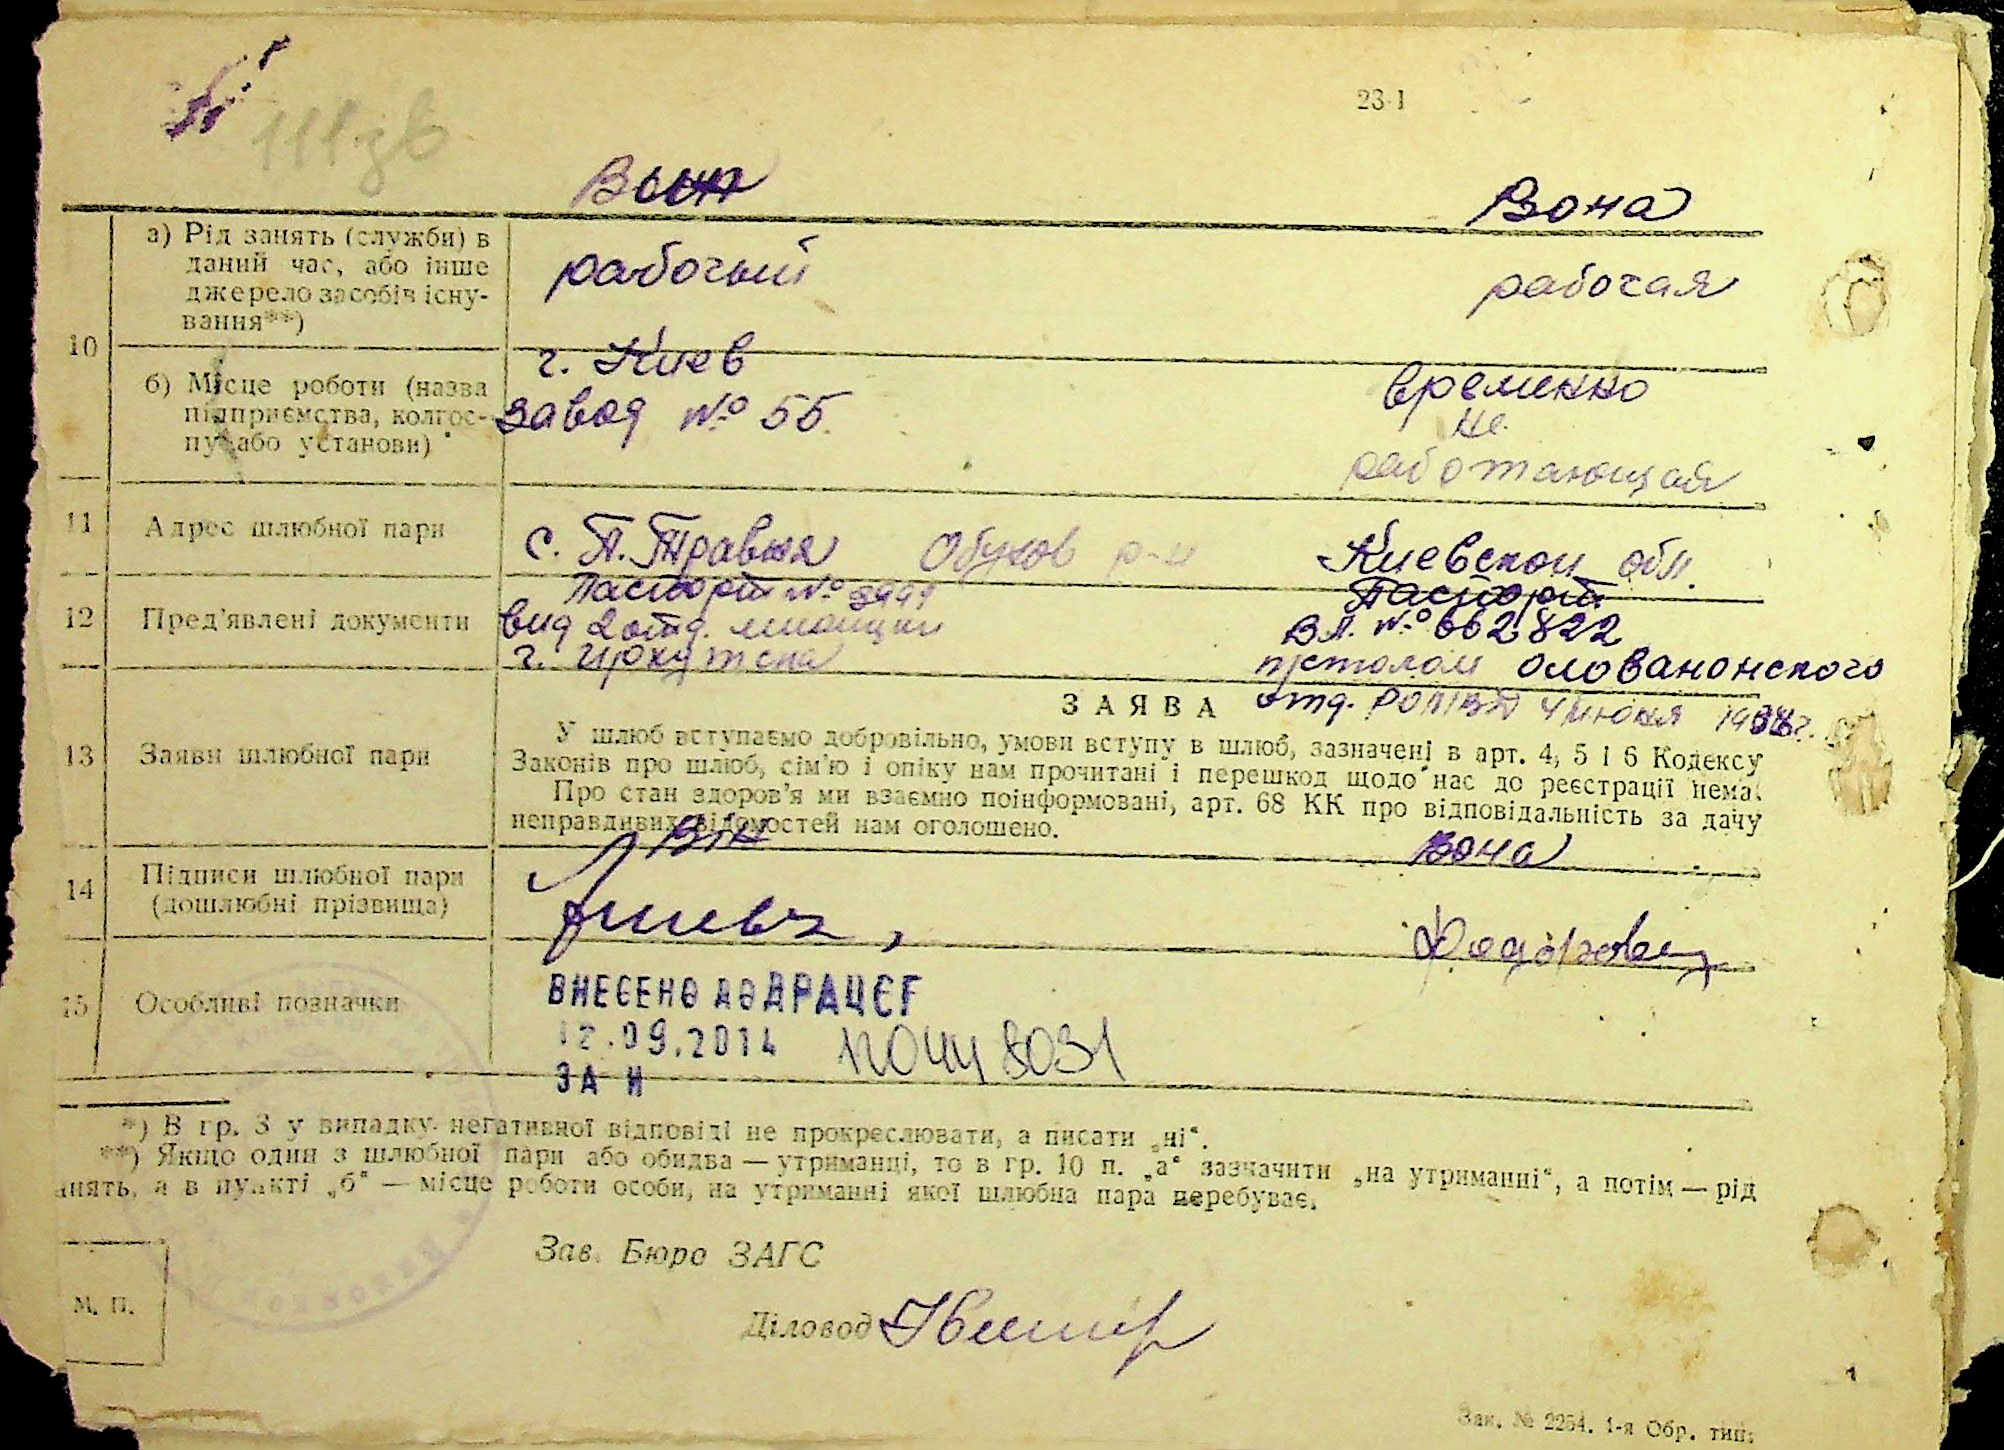 23-1
Вона
а) Рід занять (служби) в
даний час, або інше
джерело засобів існу-
вання**)
рабочый
рабочая
10
б) Місце роботи (назва
підприємства, колгос-
пу або установи)
г. Киев
завод № 55.
временно
не
работающая
11
Адрес шлюбної пари
с. П. Травня Обухов р-н Киевской обл.
12
Пред'явлені документи
Паспорт №
вид 2 отд. милиции
г. Иркутска
Паспорт
№ 662822
оловянонского
отд. 4 июня
13
Заяви шлюбної пари
ЗАЯВА
У шлюб вступаємо добровільно, умови вступу в шлюб, зазначені в арт. 4, 5 і 6 Кодексу
Законів про шлюб, сім'ю і опіку нам прочитані і перешкод щодо нас до реєстрації нема.
Про стан здоров'я ми взаємно поінформовані, арт. 68 КК про відповідальність за дачу
неправдивих відомостей нам оголошено.
Він
Вона
14
Підписи шлюбної пари
(дошлюбні прізвища)
15
Особливі позначки
ВНЕСЕНО ДО ДРАЦСГ
12.09.2014
ЗА N
*) В гр. 3 у випадку негативної відповіді не прокреслювати, а писати „ні“.
**) Якщо один з шлюбної пари або обидва — утриманці, то в гр. 10 п. „а“ зазначити „на утриманні“, а потім — рід
анять, а в пункті „б“ — місце роботи особи, на утриманні якої шлюбна пара перебуває.
Зав. Бюро ЗАГС
М. П.
Діловод
Зак. № 2254. 1-я Обр. тип.